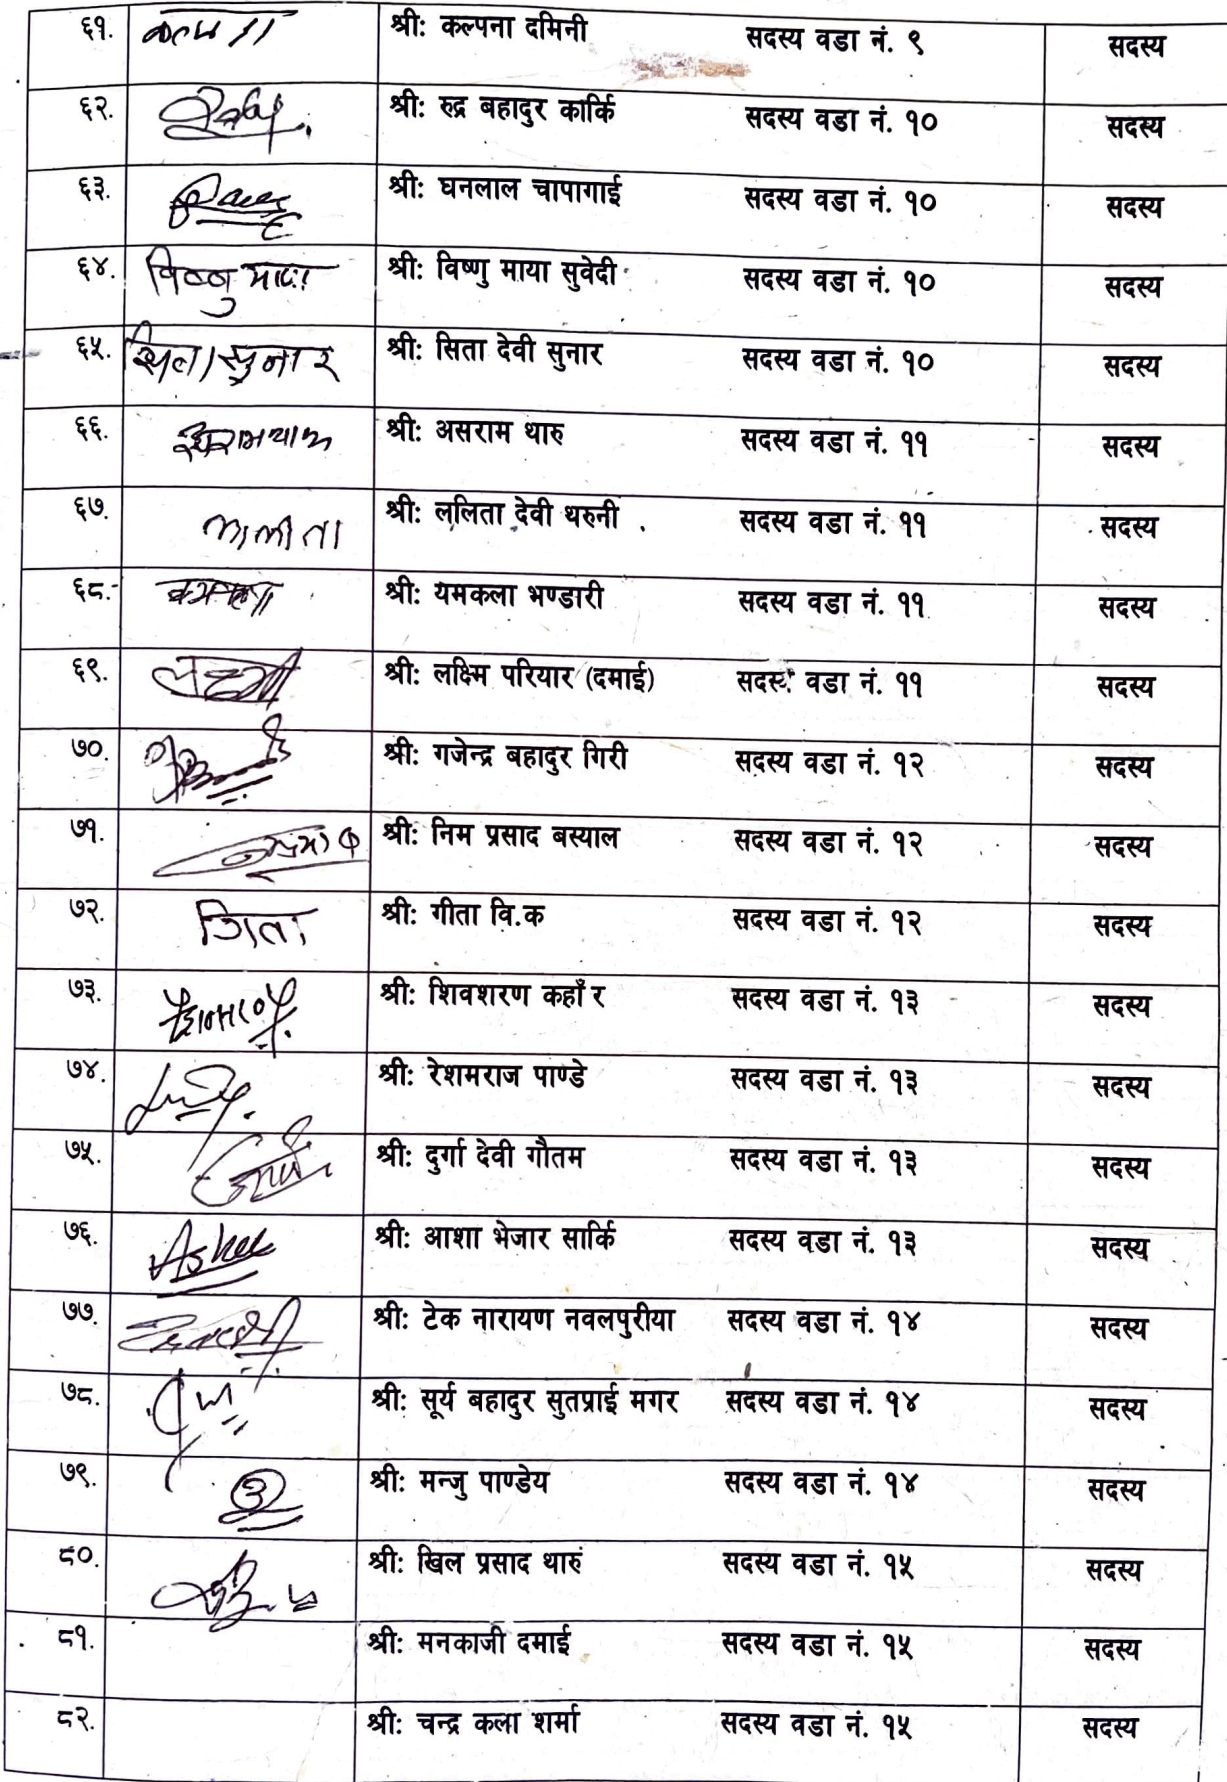 ६१. कल्पना श्री: कल्पना दमिनी सदस्य वडा नं. ९ सदस्य
६२. श्री: रुद्र बहादुर कार्कि सदस्य वडा नं. १० सदस्य
६३. श्री: घनलाल चापागाई सदस्य वडा नं. १० सदस्य
६४. विष्णु माया श्री: विष्णु माया सुवेदी सदस्य वडा नं. १० सदस्य
६५. सिता सुनार श्री: सिता देवी सुनार सदस्य वडा नं. १० सदस्य
६६. श्री: असराम थारु सदस्य वडा नं. ११ सदस्य
६७. श्री: ललिता देवी थरुनी सदस्य वडा नं. ११ सदस्य
६८. श्री: यमकला भण्डारी सदस्य वडा नं. ११ सदस्य
६९. लक्ष्मी श्री: लक्ष्मि परियार (दमाई) सदस्य वडा नं. ११ सदस्य
७०. श्री: गजेन्द्र बहादुर गिरी सदस्य वडा नं. १२ सदस्य
७१. श्री: निम प्रसाद बस्याल सदस्य वडा नं. १२ सदस्य
७२. गिता श्री: गीता वि.क सदस्य वडा नं. १२ सदस्य
७३. श्री: शिवशरण कहाँर सदस्य वडा नं. १३ सदस्य
७४. श्री: रेशमराज पाण्डे सदस्य वडा नं. १३ सदस्य
७५. श्री: दुर्गा देवी गौतम सदस्य वडा नं. १३ सदस्य
७६. श्री: आशा भेजार सार्कि सदस्य वडा नं. १३ सदस्य
७७. श्री: टेक नारायण नवलपुरीया सदस्य वडा नं. १४ सदस्य
७८. श्री: सूर्य बहादुर सुतप्राई मगर सदस्य वडा नं. १४ सदस्य
७९. श्री: मन्जु पाण्डेय सदस्य वडा नं. १४ सदस्य
८०. श्री: खिल प्रसाद थारु सदस्य वडा नं. १५ सदस्य
८१. श्री: मनकाजी दमाई सदस्य वडा नं. १५ सदस्य
८२. श्री: चन्द्र कला शर्मा सदस्य वडा नं. १५ सदस्य